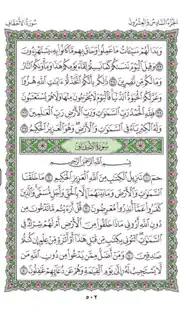 الجزء السادس والعشرون
سورة الأحقاف
وَبَدَا لَهُمْ سَيِّئَاتُ مَا عَمِلُوا وَحَاقَ بِهِم مَّا كَانُوا بِهِ يَسْتَهْزِءُونَ
وَقِيلَ الْيَوْمَ نَنسَاكُمْ كَمَا نَسِيتُمْ لِقَاءَ يَوْمِكُمْ هَٰذَا وَمَأْوَاكُمُ النَّارُ
وَمَا لَكُم مِّن نَّاصِرِينَ ذَٰلِكُم بِأَنَّكُمُ اتَّخَذْتُمْ آيَاتِ اللَّهِ هُزُوًا
وَغَرَّتْكُمُ الْحَيَاةُ الدُّنْيَا فَالْيَوْمَ لَا يُخْرَجُونَ مِنْهَا وَلَا هُمْ يُسْتَعْتَبُونَ
فَلِلَّهِ الْحَمْدُ رَبِّ السَّمَاوَاتِ وَرَبِّ الْأَرْضِ رَبِّ الْعَالَمِينَ
وَلَهُ الْكِبْرِيَاءُ فِي السَّمَاوَاتِ وَالْأَرْضِ وَهُوَ الْعَزِيزُ الْحَكِيمُ
سورة الأحقاف
بِسْمِ اللَّهِ الرَّحْمَٰنِ الرَّحِيمِ
حم تَنزِيلُ الْكِتَابِ مِنَ اللَّهِ الْعَزِيزِ الْحَكِيمِ مَا خَلَقْنَا
السَّمَاوَاتِ وَالْأَرْضَ وَمَا بَيْنَهُمَا إِلَّا بِالْحَقِّ وَأَجَلٍ مُّسَمًّى وَالَّذِينَ
كَفَرُوا عَمَّا أُنذِرُوا مُعْرِضُونَ قُلْ أَرَأَيْتُم مَّا تَدْعُونَ مِن
دُونِ اللَّهِ أَرُونِي مَاذَا خَلَقُوا مِنَ الْأَرْضِ أَمْ لَهُمْ شِرْكٌ فِي
السَّمَاوَاتِ ائْتُونِي بِكِتَابٍ مِّن قَبْلِ هَٰذَا أَوْ أَثَارَةٍ مِّنْ عِلْمٍ إِن كُنتُمْ
صَادِقِينَ وَمَنْ أَضَلُّ مِمَّن يَدْعُو مِن دُونِ اللَّهِ مَن
لَّا يَسْتَجِيبُ لَهُ إِلَىٰ يَوْمِ الْقِيَامَةِ وَهُمْ عَن دُعَائِهِمْ غَافِلُونَ
٥٠٢